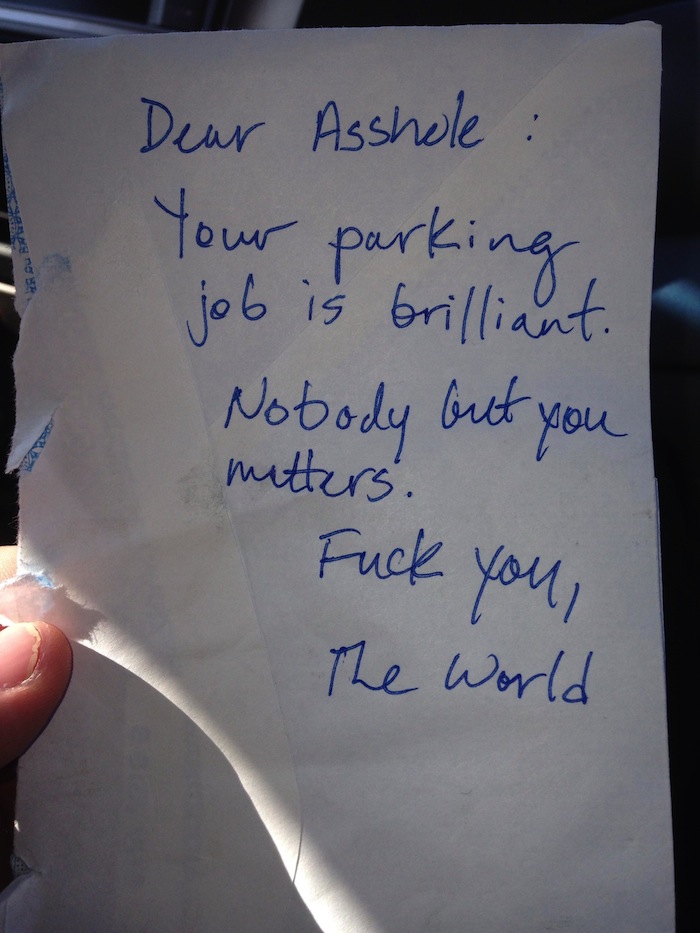 Dear Asshole :
Your parking
job is brilliant.
Nobody but you
matters.
Fuck you,
The World